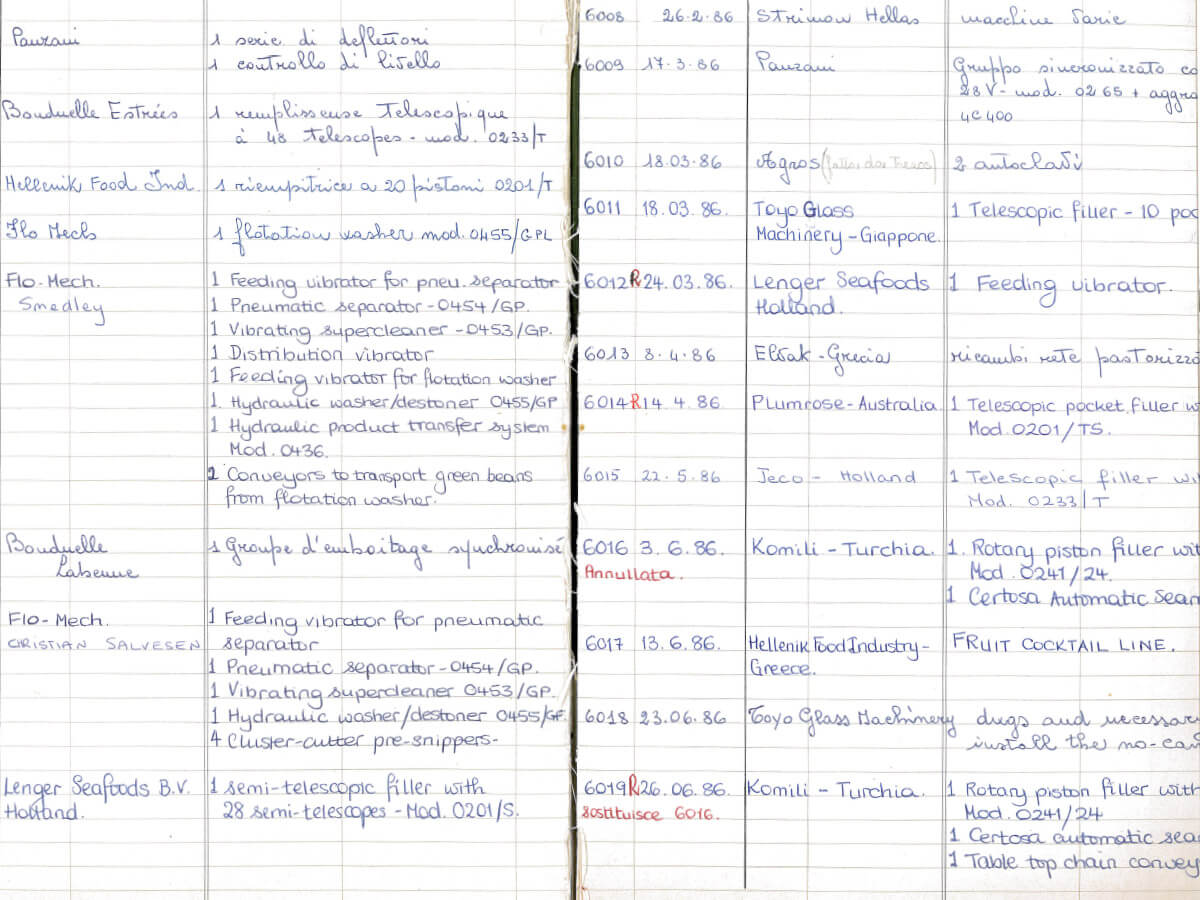 Panzani 1 serie di deflettori
1 controllo di livello
Bonduelle Estrées 1 remplisseuse Telescopique
à 48 telescopes - mod. 0233/T
Hellenik Food Ind. 1 riempitrice a 20 pistoni 0201/T
Flo Mech 1 flotation washer mod. 0455/GPL
Flo-Mech. 1 Feeding vibrator for pneu. separator
Smedley 1 Pneumatic separator - 0454/GP.
1 Vibrating supercleaner - 0453/GP.
1 Distribution vibrator
1 Feeding vibrator for flotation washer
1. Hydraulic washer/destoner 0455/GP
1 Hydraulic product transfer system
Mod. 0436.
2 Conveyors to transport green beans
from flotation washer.
Bonduelle 1 Groupe d'emboitage synchronisé
Labenne
Flo-Mech. 1 Feeding vibrator for pneumatic
CRISTIAN SALVESEN separator
1 Pneumatic separator - 0454/GP.
1 Vibrating supercleaner 0453/GP.
1 Hydraulic washer/destoner 0455/GP.
4 Cluster-cutter pre-snippers-
Lenger Seafoods B.V. 1 semi-telescopic filler with
Holland. 28 semi-telescopes - Mod. 0201/S.
6008 26-2-86 Strimon Hellas macchine varie
6009 17-3-86 Panzani Gruppo sincronizzato co
28V - mod. 0265 + aggra
4C400
6010 18.03.86 Agros 2 autoclavi
6011 18.03.86. Toyo Glass 1 Telescopic filler - 10 poc
Machinery - Giappone.
6012 R 24.03.86. Lenger Seafoods 1 Feeding vibrator.
Holland.
6013 8-4-86 Elvak - Grecia ricambi rete pastorizza
6014 R 14.4.86. Plumrose - Australia. 1 Telescopic pocket filler w
Mod. 0201/TS.
6015 22-5-86 Jeco - Holland 1 Telescopic filler wi
Mod. 0233/T
6016 3.6.86. Komili - Turchia. 1. Rotary piston filler wit
Annullata. Mod. 0241/24.
1 Certosa Automatic Seam
6017 13.6.86. Hellenik Food Industry - FRUIT COCKTAIL LINE.
Greece.
6018 23.06.86 Toyo Glass Machinery dugs and necessar
install the no-can
6019 R 26.06.86. Komili - Turchia. 1 Rotary piston filler with
sostituisce 6016. Mod. 0241/24
1 Certosa automatic sea
1 Table top chain convey